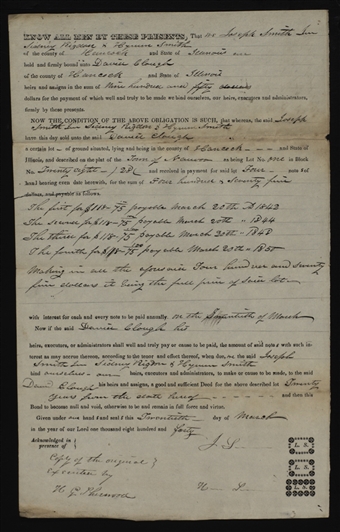 KNOW ALL MEN BY THESE PRESENTS, That we Joseph Smith Jun
Sidney Rigdon & Hyrum Smith
of the county of Hancock and State of Illinois are
held and firmly bound unto Daniel Clough
of the county of Hancock and State of Illinois
heirs and assigns in the sum of Nine hundred and fifty dollars
dollars for the payment of which well and truly to be made we bind ourselves, our heirs, executors and administrators,
firmly by these presents.
NOW THE CONDITION OF THE ABOVE OBLIGATION IS SUCH, That whereas, the said Joseph
Smith Jun Sidney Rigdon & Hyrum Smith
have this day sold unto the said Daniel Clough
a certain lot of ground situated, lying and being in the county of Hancock and State of
Illinois, and described on the plat of the Town of Nauvoo as being Lot No. one in Block
No. Twenty eight - (28) and received in payment for said lot Four notes of
hand bearing even date herewith, for the sum of Four hundred & Seventy five
dollars, and payable as follows,
The first for $118-75 payable March 20th 1842
The second for $118-75 payable March 20th 1844
The third for $118-75 payable March 20th 1848
The fourth for $118-75 payable March 20th 1850
Making in all the aforesaid Four hundred and seventy
five dollars it being the full price of said lot
with interest for each and every note to be paid annually on the Twentieth of March
Now if the said Daniel Clough his
heirs, executors, or administrators shall well and truly pay or cause to be paid, the amount of said notes with such in-
terest as may accrue thereon, according to the tenor and effect thereof, when due, the said Joseph
Smith Jun Sidney Rigdon & Hyrum Smith
bind ourselves our heirs, executors or administrators, to make or cause to be made, to the said
Daniel Clough his heirs and assigns, a good and sufficient Deed for the above described lot Twenty
years from the date hereof and then this
Bond to become null and void, otherwise to be and remain in full force and virtue.
Given under our hands and seals this Twentieth day of March
in the year of our Lord one thousand eight hundred and forty
Acknowledged in
presence of
J. S.
L. S.
L. S.
Copy of the original
executed by
H. G. Sherwood
H. S.
L. S.